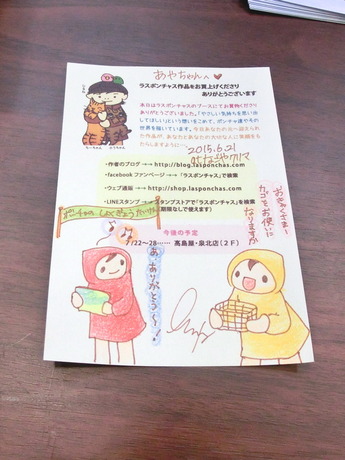 あやちゃんへ
ラスポンチャス作品をお買上げくださり
ありがとうございます
本日はラスポンチャスのブースにてお買物くださり
ありがとうございました。「やさしい気持ちを思い出
してほしい」という想いをこめて、ポンチャ達や今の
世界を描いています。今日あなたの元へ迎えられ
た作品が、あなたとあなたの大切な人に笑顔をも
たらしますように…
2015.6.21
・作者のブログ →→ http://blog.lasponchas.com
・facebook ファンページ →→「ラスポンチャス」で検索
・ウェブ通販 →→ http://shop.lasponchas.com
・LINEスタンプ →→スタンプストアで「ラスポンチャス」を検索
期限なしで使えます)
おきゃくさまー
カゴをお使いに
なりますか
ポンチャの しょくぎょうたいけん
今後の予定
7/22〜28…… 髙島屋・泉北店(2F)
あ、ありがとう〜!